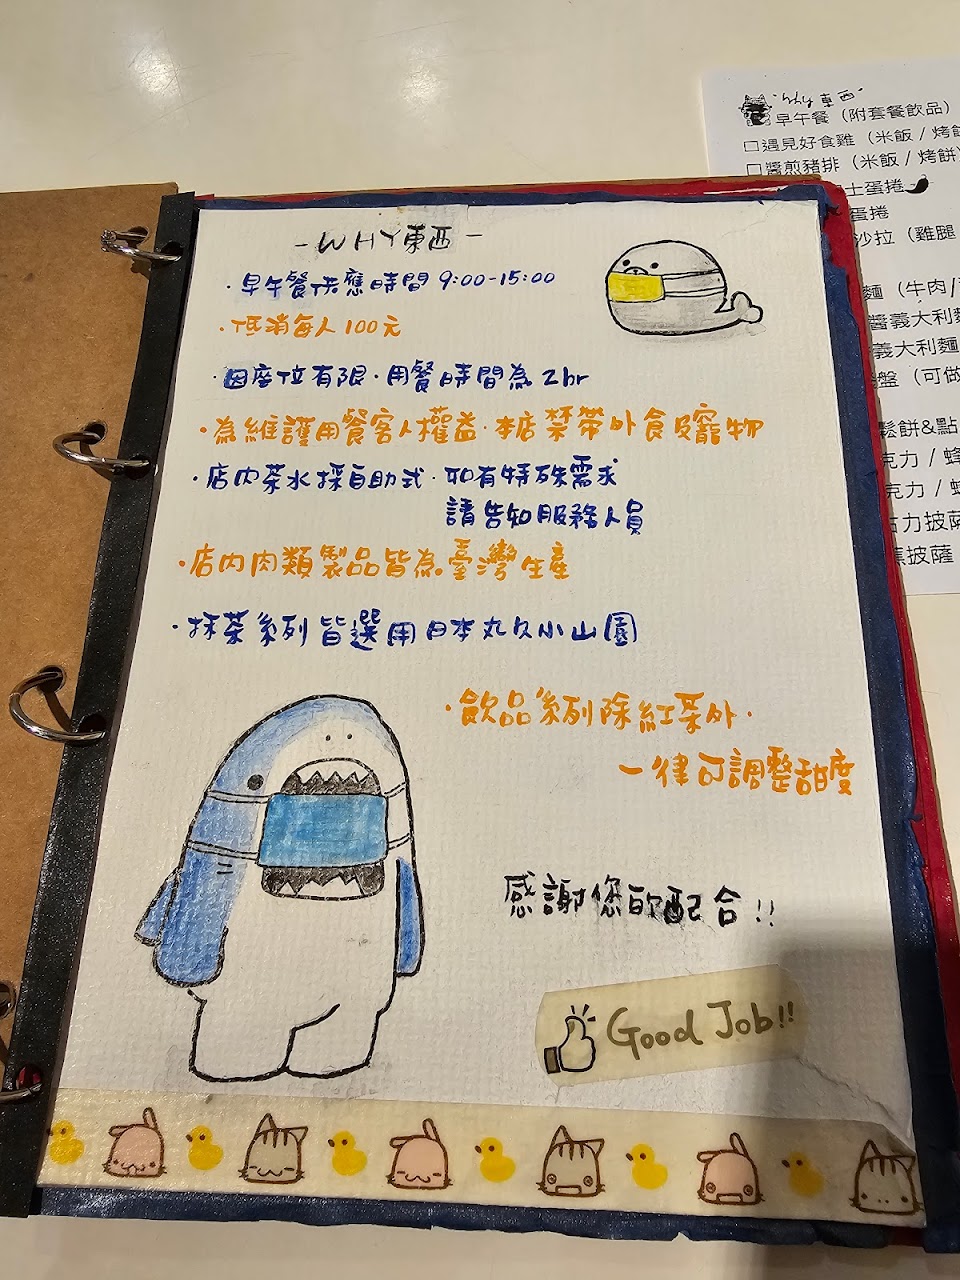 －WHY東西－
・早午餐供應時間 9:00-15:00
・低消每人100元
・因座位有限・用餐時間為2hr
・為維護用餐客人權益・本店禁帶外食及寵物
・店內茶水採自助式・如有特殊需求
請告知服務人員
・店內肉類製品皆為臺灣生產
・抹茶系列皆選用日本丸久小山園
・飲品系列除紅茶外・
一律可調整甜度
感謝您的配合!!
Good Job!!
・Why東西・
早午餐（附套餐飲品）
□遇見好食雞（米飯 / 烤餅
□醬煎豬排（米飯 / 烤餅）
士蛋捲
蛋捲
沙拉（雞腿
麵（牛肉/
醬義大利麵
義大利麵
盤（可做
鬆餅&點
克力 / 蜂
克力 / 蜂
古力披薩
蕉披薩